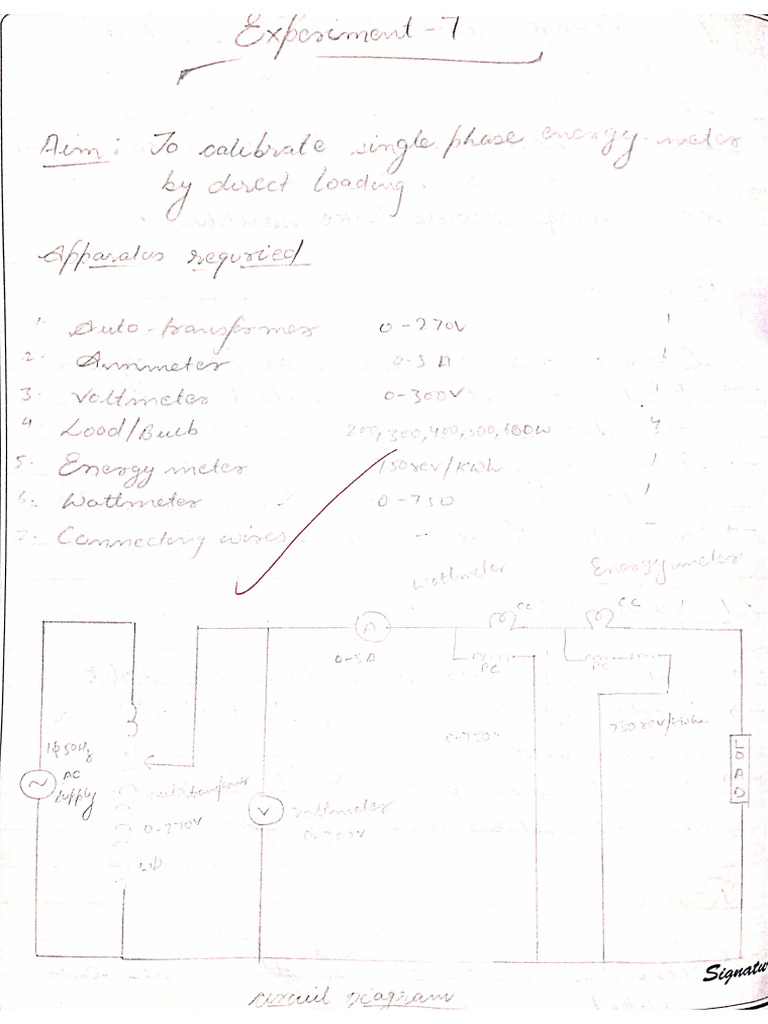 Experiment - 7
Aim: To calibrate single phase energy meter
by direct loading.
Apparatus requried
1. Auto-transformer 0-270V 1
2. Ammeter 0-5A 1
3. Voltmeter 0-300V 1
4 Load/Bulb 200,300,400,500,600W 4
5. Energy meter 750rev/kwh 1
6. Wattmeter 0-750 1
7. Connecting wires - -
Wattmeter Energy meter
CC CC
A
0-5A
PC PC
1ɸ 50Hz
AC
supply
autotransformer
0-270V
1ɸ
V
Voltmeter
0-750
750rev/kwh
LOAD
circuit Diagram